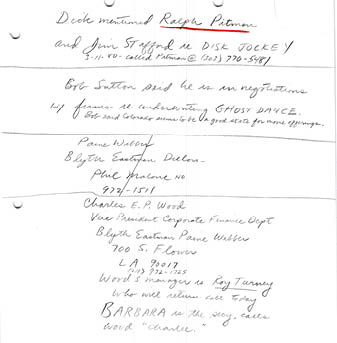 Dick mentioned Ralph Pitman
and Jim Stafford re DISK JOCKEY
3-11-80 - called Pitman @ (303) 770-5481
Bob Sutton said he is in negotiations
w/ firms re underwriting GHOST DANCE.
Bob said Colorado seems to be a good state for movie offerings.
Paine Webber
Blyth Eastman Dillon
Phil Malone NO
972-1511
Charles E. P. Wood
Vice President Corporate Finance Dept
Blyth Eastman Paine Webber
700 S. Flower
LA 90017
Wood's manager is Roy Tierney
who will return call today
BARBARA is the secy. calls
Wood "Charlie."